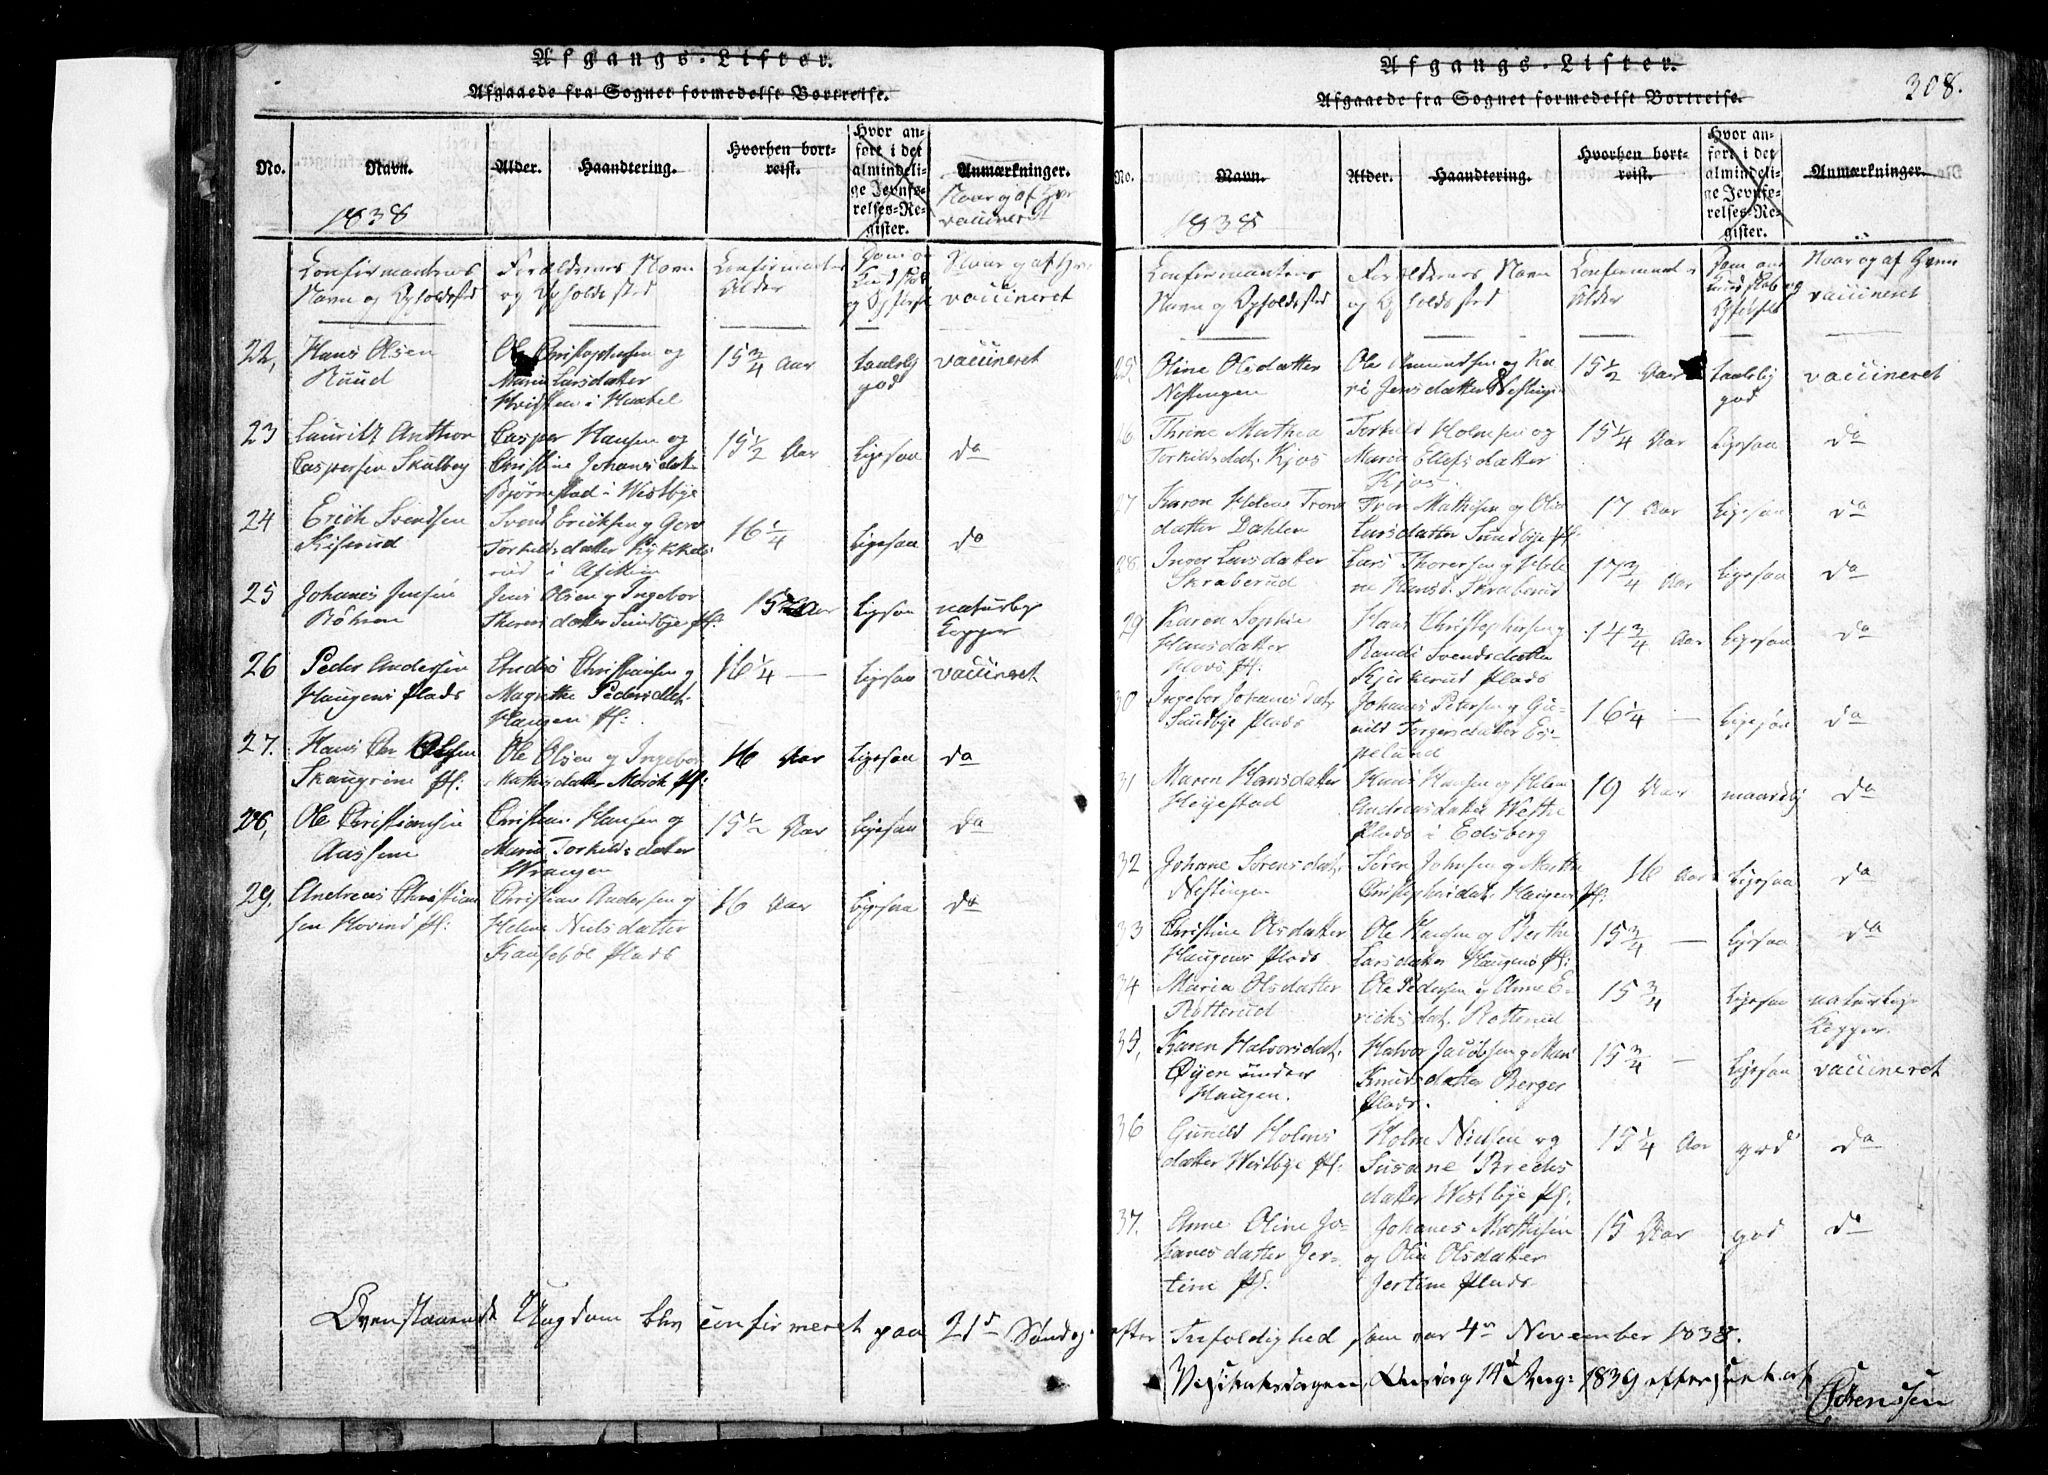 Afgangs-Lister.
Afgaaede fra Sognet formedelst Bortreise.
No.
Navn.
Alder.
Haandtering.
Hvorhen bort-
reist.
Hvor an-
ført i det
almindeli-
ge Jevnfø-
relses-Re-
gister.
Anmærkninger.
Naar og af Hvem
vaccineret
1838
Confirmantens
Navn og Opholdssted
Forældrenes Navn
og Opholdssted
Confirmantens
Alder
Dom om
Kundskab
og Opførsel
Naar og af Hvem
vaccineret
22, Hans Olsen
Ruud
Ole Christophersen og
Maria Larsdatter
Hvidsten i
15 3/4 Aar
taalelig
god
vaccineret
23 Lauritz Anthon
Caspersen Skulberg
Casper Hansen og
Christine Johansdat.
Bjørnestad i Westbye
15 1/2 Aar
Ligesaa
do
24 Erich Svendsen
Svend Erichsen og
Torkildsdatter
16 1/4
Ligesaa
do
25 Johanes Jensen
Jens Olsen og Ingebor
Thoresdatter Sundbye Pl:
15 Aar
Ligesaa
naturlige
Kopper
26 Peder Andersen
Haugens Plads
Andres Christiansen og
Magrethe Pedersdat.
Haugen Pl:
16 1/4 —
Ligesaa
vaccineret
27. Hans Olsen
Pl:
Ole Olsen og Ingebor
Mathisdatter Pl:
16 Aar
Ligesaa
do
28, Ole Christiansen
Christian Hansen og
Maria Torkildsdatter
Wrangen
15 1/2 Aar
Ligesaa
do
29. Andreas Christian
sen Hovind Pl:
Christian Andersen og
Helene Nielsdatter
Plads
16 Aar
Ligesaa
do
Ovenstaaende Ungdom blev confirmeret paa 21de Søndag
Afgangs-Lister.
Afgaaede fra Sognet formedelst Bortreise.
308.
No.
Navn.
Alder.
Haandtering.
Hvorhen bort-
reist.
Hvor an-
ført i det
almindeli-
ge Jevnfø-
relses-Re-
gister.
Anmærkninger.
1838
Confirmantens
Navn og Opholdssted
Forældrenes Navn
og Opholdssted
Confirmantens
Alder
Dom om
Kundskab og
Opførsel
Naar og af Hvem
vaccineret
25. Oline Olsdatter
Nestingen
Ole Amundsen og Ka-
ri Jensdatter Nestingen
15 1/2 Aar
taalelig
god
vaccineret
26 Thrine Mathea
Torkildsdat. Kjos
Torkild Holmsen og
Maria Ellefsdatter
Kjos
15 1/4 Aar
Ligesaa
do
27 Karen Helene Trons
datter Dahlen
Tron Mathisen og
Larsdatter Sundbye Pl:
17 Aar
Ligesaa
do
28 Inger Larsdatter
Skraberud
Lars Thoresen og Hele-
ne Hansd. Skraberud
17 3/4 Aar
Ligesaa
do
29 Karen Sophie
Hansdatter
Pl:
Hans Christophersen og
Randi Svendsdatter
Kjerkerud Plads
14 3/4 Aar
Ligesaa
do
30 Ingebor Johanesdat.
Sundbye Plads
Johanes Petersen og Gu-
nild Torgersdatter Es-
pelund
16 1/4 —
Ligesaa
do
31 Maren Hansdatter
Høyestad
Hans Hansen og Helene
Andreasdatter
Plads i Edsberg
19 Aar
maadelig
do
32 Johane Sørensdat.
Nestingen
Søren Johnsen og Marthe
Christophersdat. Haugens Pl:
16 Aar
Ligesaa
do
33 Christine Olsdatter
Haugens Plads
Ole Hansen og Berthe
Larsdatter Haugens Pl:
15 3/4 —
Ligesaa
do
34 Maria Olsdatter
Rotterud
Ole Pedersen og Anne E-
richsdat. Rotterud
15 3/4
Ligesaa
naturlige
Kopper.
35, Karen Halvorsdat.
Øyen under
Haugen.
Halvor Jacobsen og Mari
Knudsdatter Berger
Plads.
15 3/4 —
Ligesaa
vaccineret
36 Gunild Holms
datter Westbye Pl:
Holm Nielsen og
Susane Bredes
datter Westbye Pl:
15 1/4 Aar
god
do
37. Anne Oline Jo-
hanesdatter Jer-
tine Pl:
Johanes Mathisen
og Olia Olsdatter
Jertine Plads
15 Aar
god
do
efter Trefoldighed som var 4de November 1838.
Visitatsdagen, Onsdag 14d Aug: 1839 efterseet af
Sørenssen